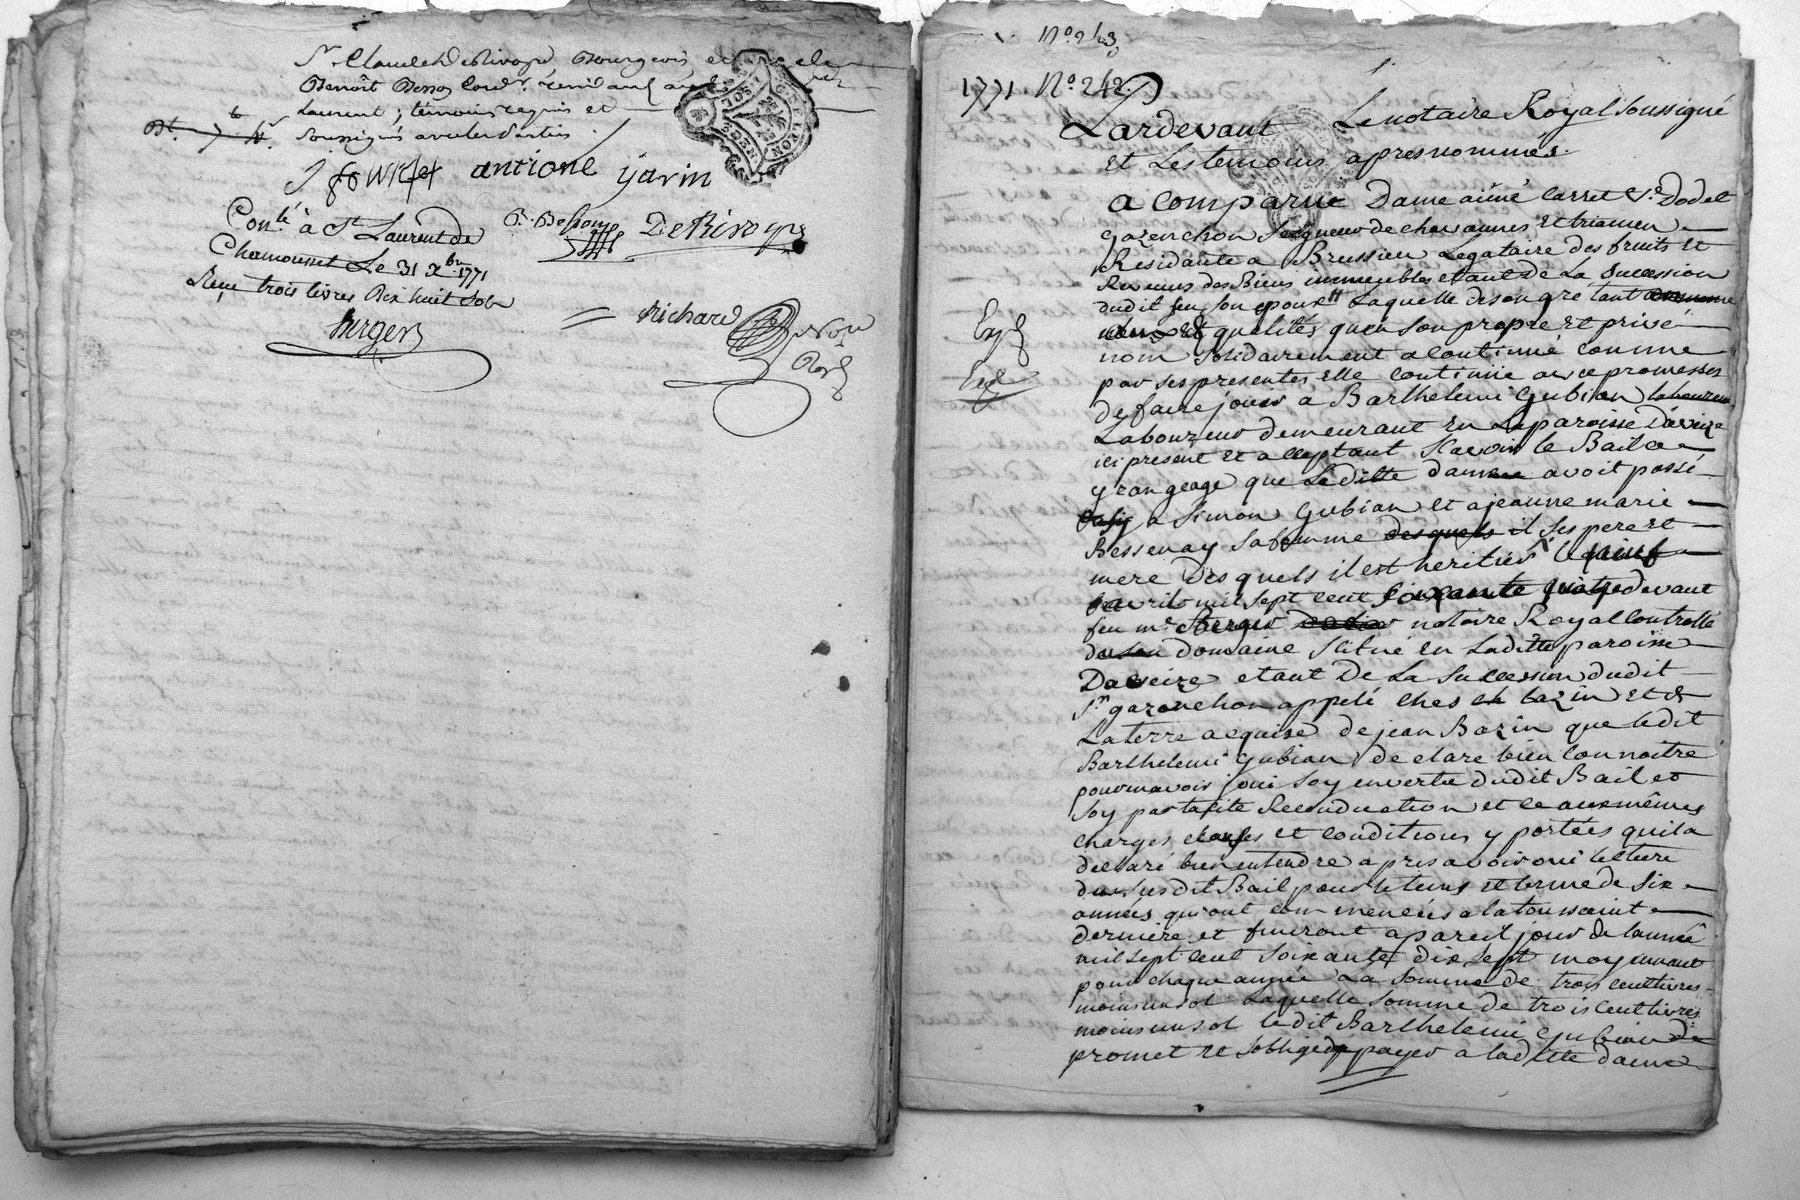 Sr. Claude De Rivoyre Bourgeois et
Benoît Besson Cord.r
Laurent; témoins requis et
Soussignés avec les parties
antione jarin
B. Besson De Rivoyre
Con.lé à St Laurent de
Chamousset Le 31 Xbre 1771
Reçu trois livres Dix huit Sols
Berger
Richard
Not
Royl
No. 243
1771. No. 242.
Pardevant Le notaire Royal soussigné
Et Les temoins apres nommés.
a comparüe Dame aimé Carret Ve. Dodat
Seigneur de chavannes Et
Residante a Brussieu Legataire des fruits Et
Revenus des Biens immeubles etant de La Succession
dudit feu son epoux Laquelle de son gré tant
qualités qu'en son propre Et privé
nom solidairement a continué comme
par ses presentes Elle continüe avec promesses
de faire jouir a Barthelemi Gubian
Laboureur demeurant En La paroisse Daveize
ici present Et acceptant Scavoir le Bail a
grangeage que Laditte dame avoit passé
a Simon Gubian et a jeanne marie
Bessenay sa femme desquels il Ses pere Et
mere Desquels il est heritier le
avril mil sept cent soixante quatre devant
feu me. Berger notaire Royal Controllé
domaine Scitué En Laditte paroisse
Daveize etant De La Succession dudit
Sr. gazanchon appelé Ches Bazin Et de
La terre acquise de jean Bazin que ledit
Barthelemi Gubian declare bien connoitre
pour en avoir joui Soy en vertu dudit Bail et
Soy par tacite Reconduction et ce aux mêmes
charges clauses et conditions y portées qu'il a
declaré bien entendre apres avoir oui lecture
du susdit Bail pour le tems et terme de six
années qui ont commencées a la toussaint
derniere et finiront a pareil jour de l'année
mil sept cent soixante dix sept moyennant
pour chaque année La Somme de trois cent livres
moins un sol Laquelle somme de trois cent livres
moins un sol ledit Barthelemi Gubian
promet Et s'oblige de payer a laditte dame